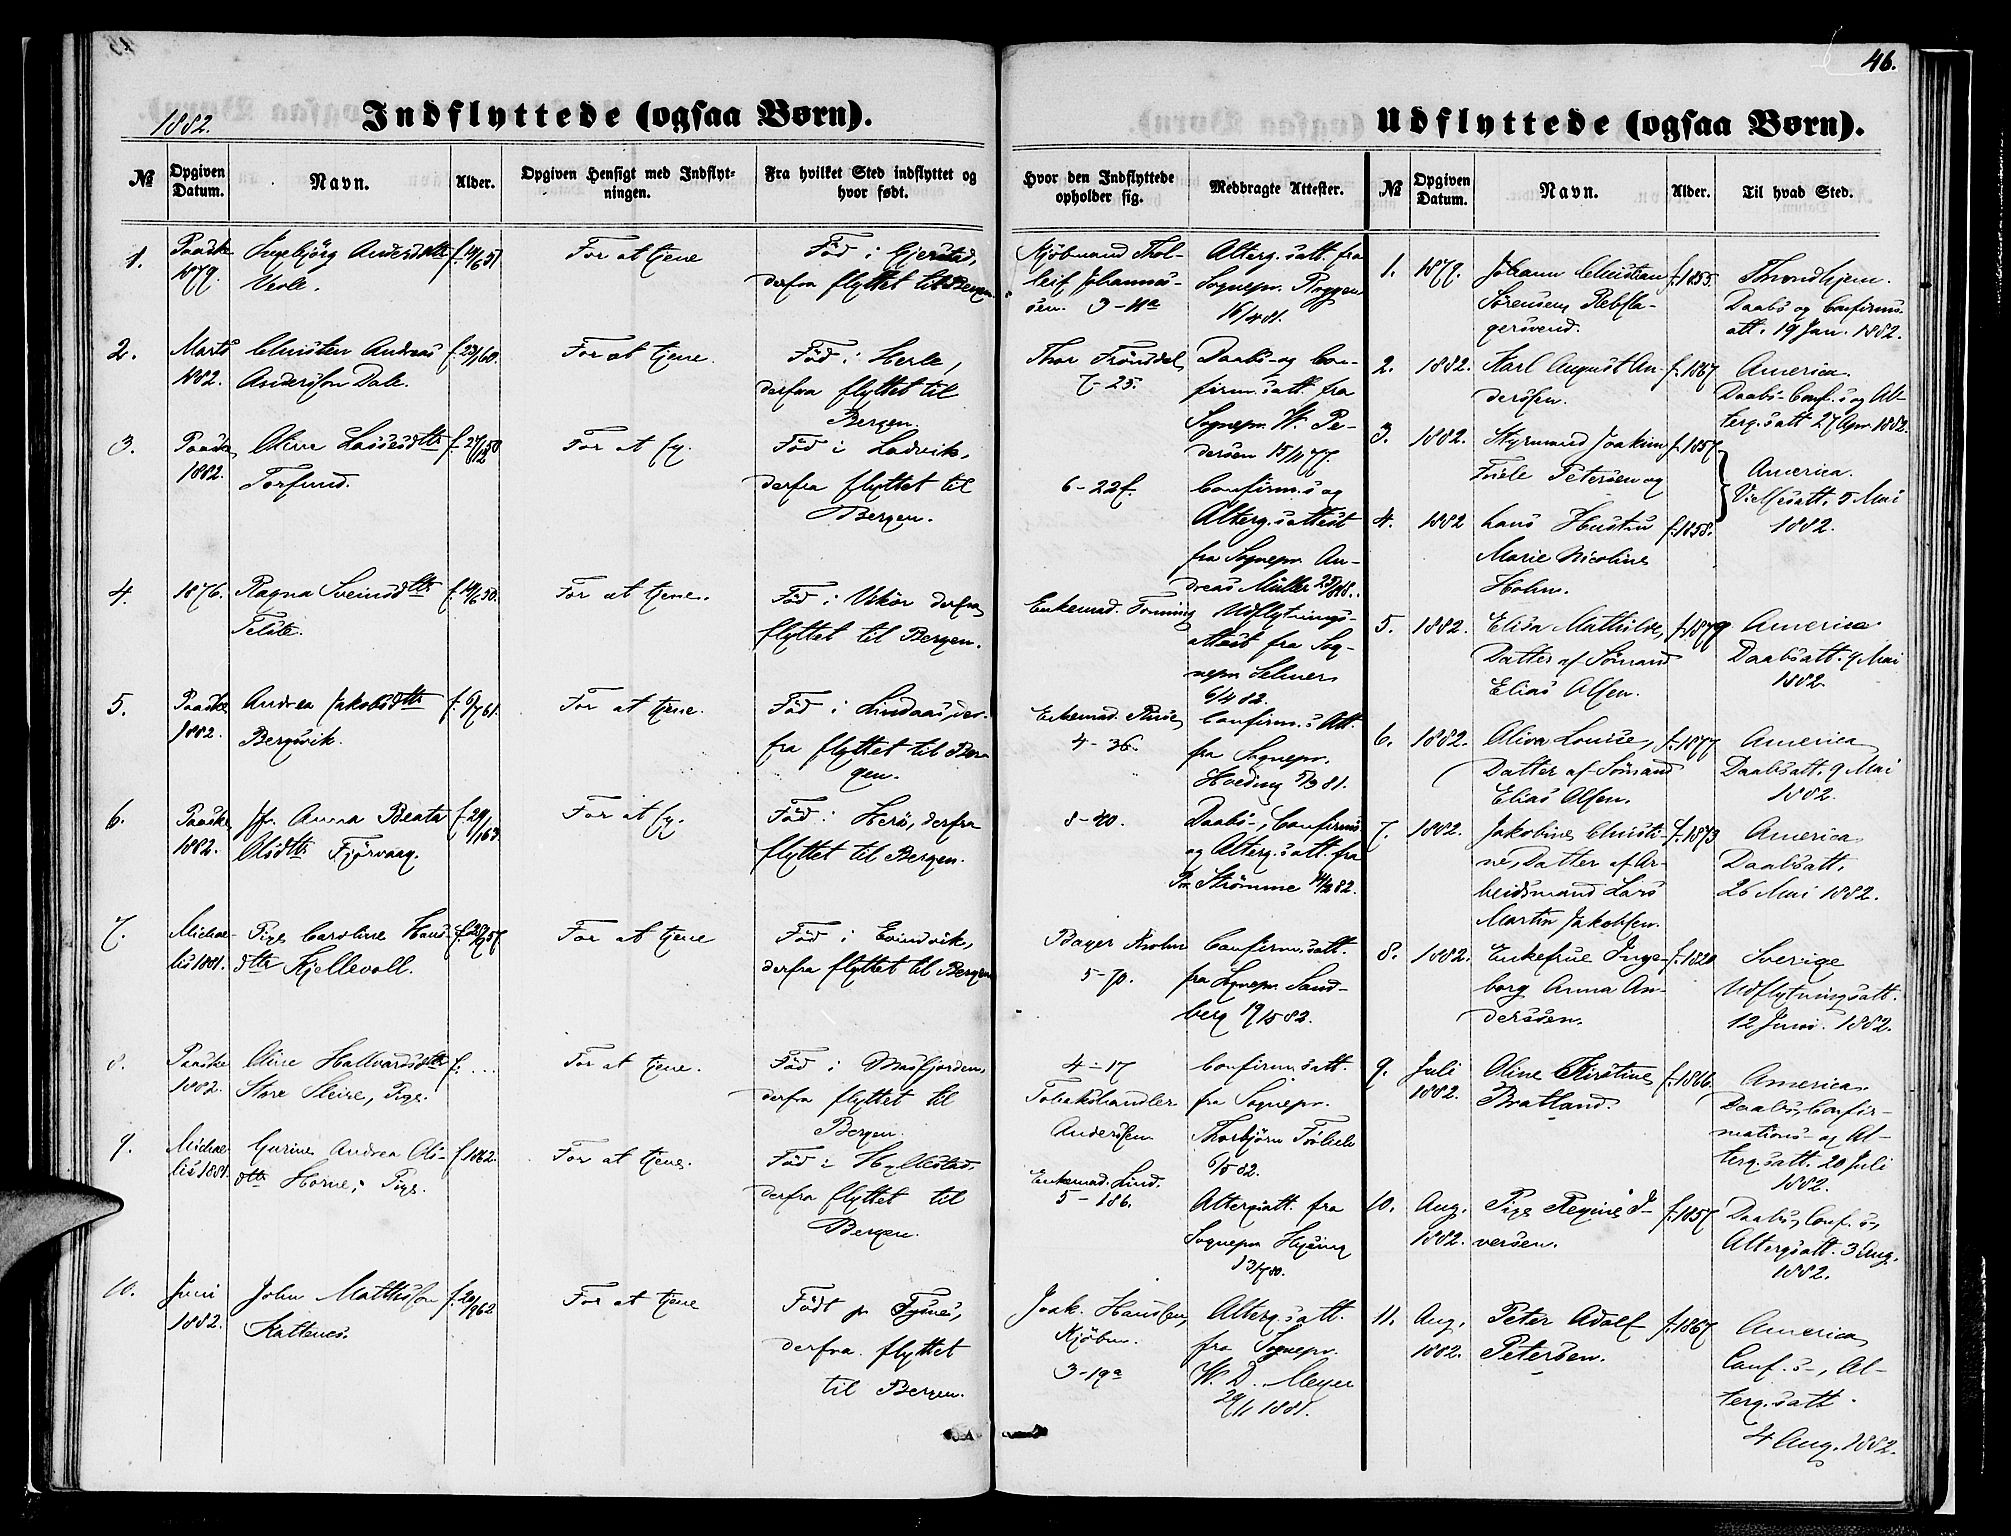 46.
1882.
Indflyttede (ogsaa Børn).
Udflyttede (ogsaa Børn).
№
Opgiven Datum.
Navn.
Alder.
Opgiven Hensigt med Indflyt-
ningen.
Fra hvilket Sted indflyttet og
hvor født.
Hvor den Indflyttede
opholder sig.
Medbragte Attester.
№
Opgiven Datum.
Navn.
Alder.
Til hvad Sted.
1.
Paaske
1879.
Ingebjörg Andersdttr
f. 14/6 51
For at tjene
Föd i Gjerstad,
derfra flyttet til Bergen
Kjöbmand Thol-
leif Johannes-
sen. 3-11a
Alterg.satt. fra
Sognepr. Roggen
16/4 81.
2.
Marts
1882.
Christen Andreas
Anderssön Dale.
f. 23/1 60.
For at tjene.
Föd i Herle,
derfra flyttet til
Bergen.
Thor Frönsdal
7-25.
Daabs- og Con-
firm.satt. fra
Sognepr. W. Pe-
dersen 15/11 77.
3.
Paaske
1882.
Oline Lassesdttr
Torsund.
f. 27/12 50
For at sy.
Föd i Ladvik,
derfra flyttet til
Bergen.
6-22f.
Confirm.s og
Alterg.sattest
fra Sognepr. An-
dreas Müller
4.
1876.
Ragna Sveinsdttr
Telste.
f. 14/6 50.
For at tjene.
Föd i Vikör derfra
flyttet til Bergen.
Enkemad. Tonning
Udflytnings-
attest fra Sog-
nepr. Selmer
6/4 82.
5.
Paaske
1882.
Andrea Jakobsdttr
Bergsvik.
f. 6/7 61.
For at tjene.
Föd i Lindaas, der-
fra flyttet til Ber-
gen.
Enkemad.
4-36.
Confirm.s Att.
fra Sognepr.
Hveding 5/9 81.
6.
Paaske
1882.
Jfr. Anna Beata
Olsdttr Fjörvaag.
f. 29/1 63
For at sy.
Föd i Herö, derfra
flyttet til Bergen.
8-40.
Daabs-, Confirm.s
og Alterg.satt. fra
Pr. Strömme 14/3 82.
7.
Michae-
lis 1881.
Pige Caroline Hans-
dttr Kjellevoll.
f. 28/9 57
For at tjene
Föd i Evindvik,
derfra flyttet til Bergen
Bager Krohn
5-70.
Confirm.satt.
fra Sognepr. Sand-
berg 19/5 82.
8.
Paaske
1882.
Oline Hallvardsdttr
Store Steine, Pige.
f. ...
For at tjene.
Föd i Masfjorden,
derfra flyttet til
Bergen.
4-17
Tobakshandler
Anderssen
Confirm.satt.
fra Sognepr.
Thorbjörn Fröhch
6/5 82.
9.
Michae-
lis 1881.
Gurine Andrea Ols-
dttr Horne, Pige.
f. 1862.
For at tjene.
Föd i Hyllestad,
derfra flyttet til
Bergen.
Enkemad. Lind.
5-186.
Altergsatt. fra
Sognepr. Hysing
13/7 80.
10.
Juni
1882.
John Matthissön
Kattenes.
f. 20/9 62
For at tjene
Födt p. Tysnes,
derfra flyttet
til Bergen.
Joak. Hanssen,
Kjöbm.
3-19a
Alterg.satt.
fra Sognepr.
W. D. Meyer
29/11 1881.
1.
1879.
Johann Christian
Sörensen, Rebsla-
gersvend.
f. 1855.
Throndhjem.
Daabs og Confirms
att. 19 Jan. 1882.
2.
1882.
Karl August An-
dersen.
f. 1867
America.
Daabs- Conf.s og Al-
terg.satt 27 Apr. 1882.
3.
1882.
Styrmand Joakim
Friele Petersen og
f. 1857
America.
Vielsesatt. 5 Mai
1882.
4.
1882
hans Hustru
Marie Nicoline
Holm.
f. 1858.
5.
1882.
Elisa Mathilde,
Datter af Sömand
Elias Olsen.
f. 1879
America
Daabsatt. 9 Mai
1882.
6.
1882.
Oliva Louise,
Datter af Sömand
Elias Olsen.
f. 1877
America
Daabsatt. 9 Mai
1882.
7.
1882.
Jakobine Christi-
ne, Datter af Ar-
beidsmand Lars
Martin Jakobsen.
f. 1873
America
Daabsatt.
26 Mai 1882.
8.
1882.
Enkefrue Inge-
borg Anna An-
derssen.
f. 1820
Sverige
Udflytningsatt.
12 Juni. 1882.
9.
Juli
1882.
Oline Kirstine
Bratland.
f. 1866.
America.
Daabs, Confir-
mations- og Al-
terg.satt. 20 Juli
1882.
10.
Aug.
1882.
Pige Regine I-
versen.
f. 1857
Daabs, Conf.s,
Altergsatt. 3 Aug.
1882.
11.
Aug.
1882.
Peter Adolf
Petersen.
f. 1867
America,
Conf.s-, Al-
terg.satt.
4 Aug. 1882.